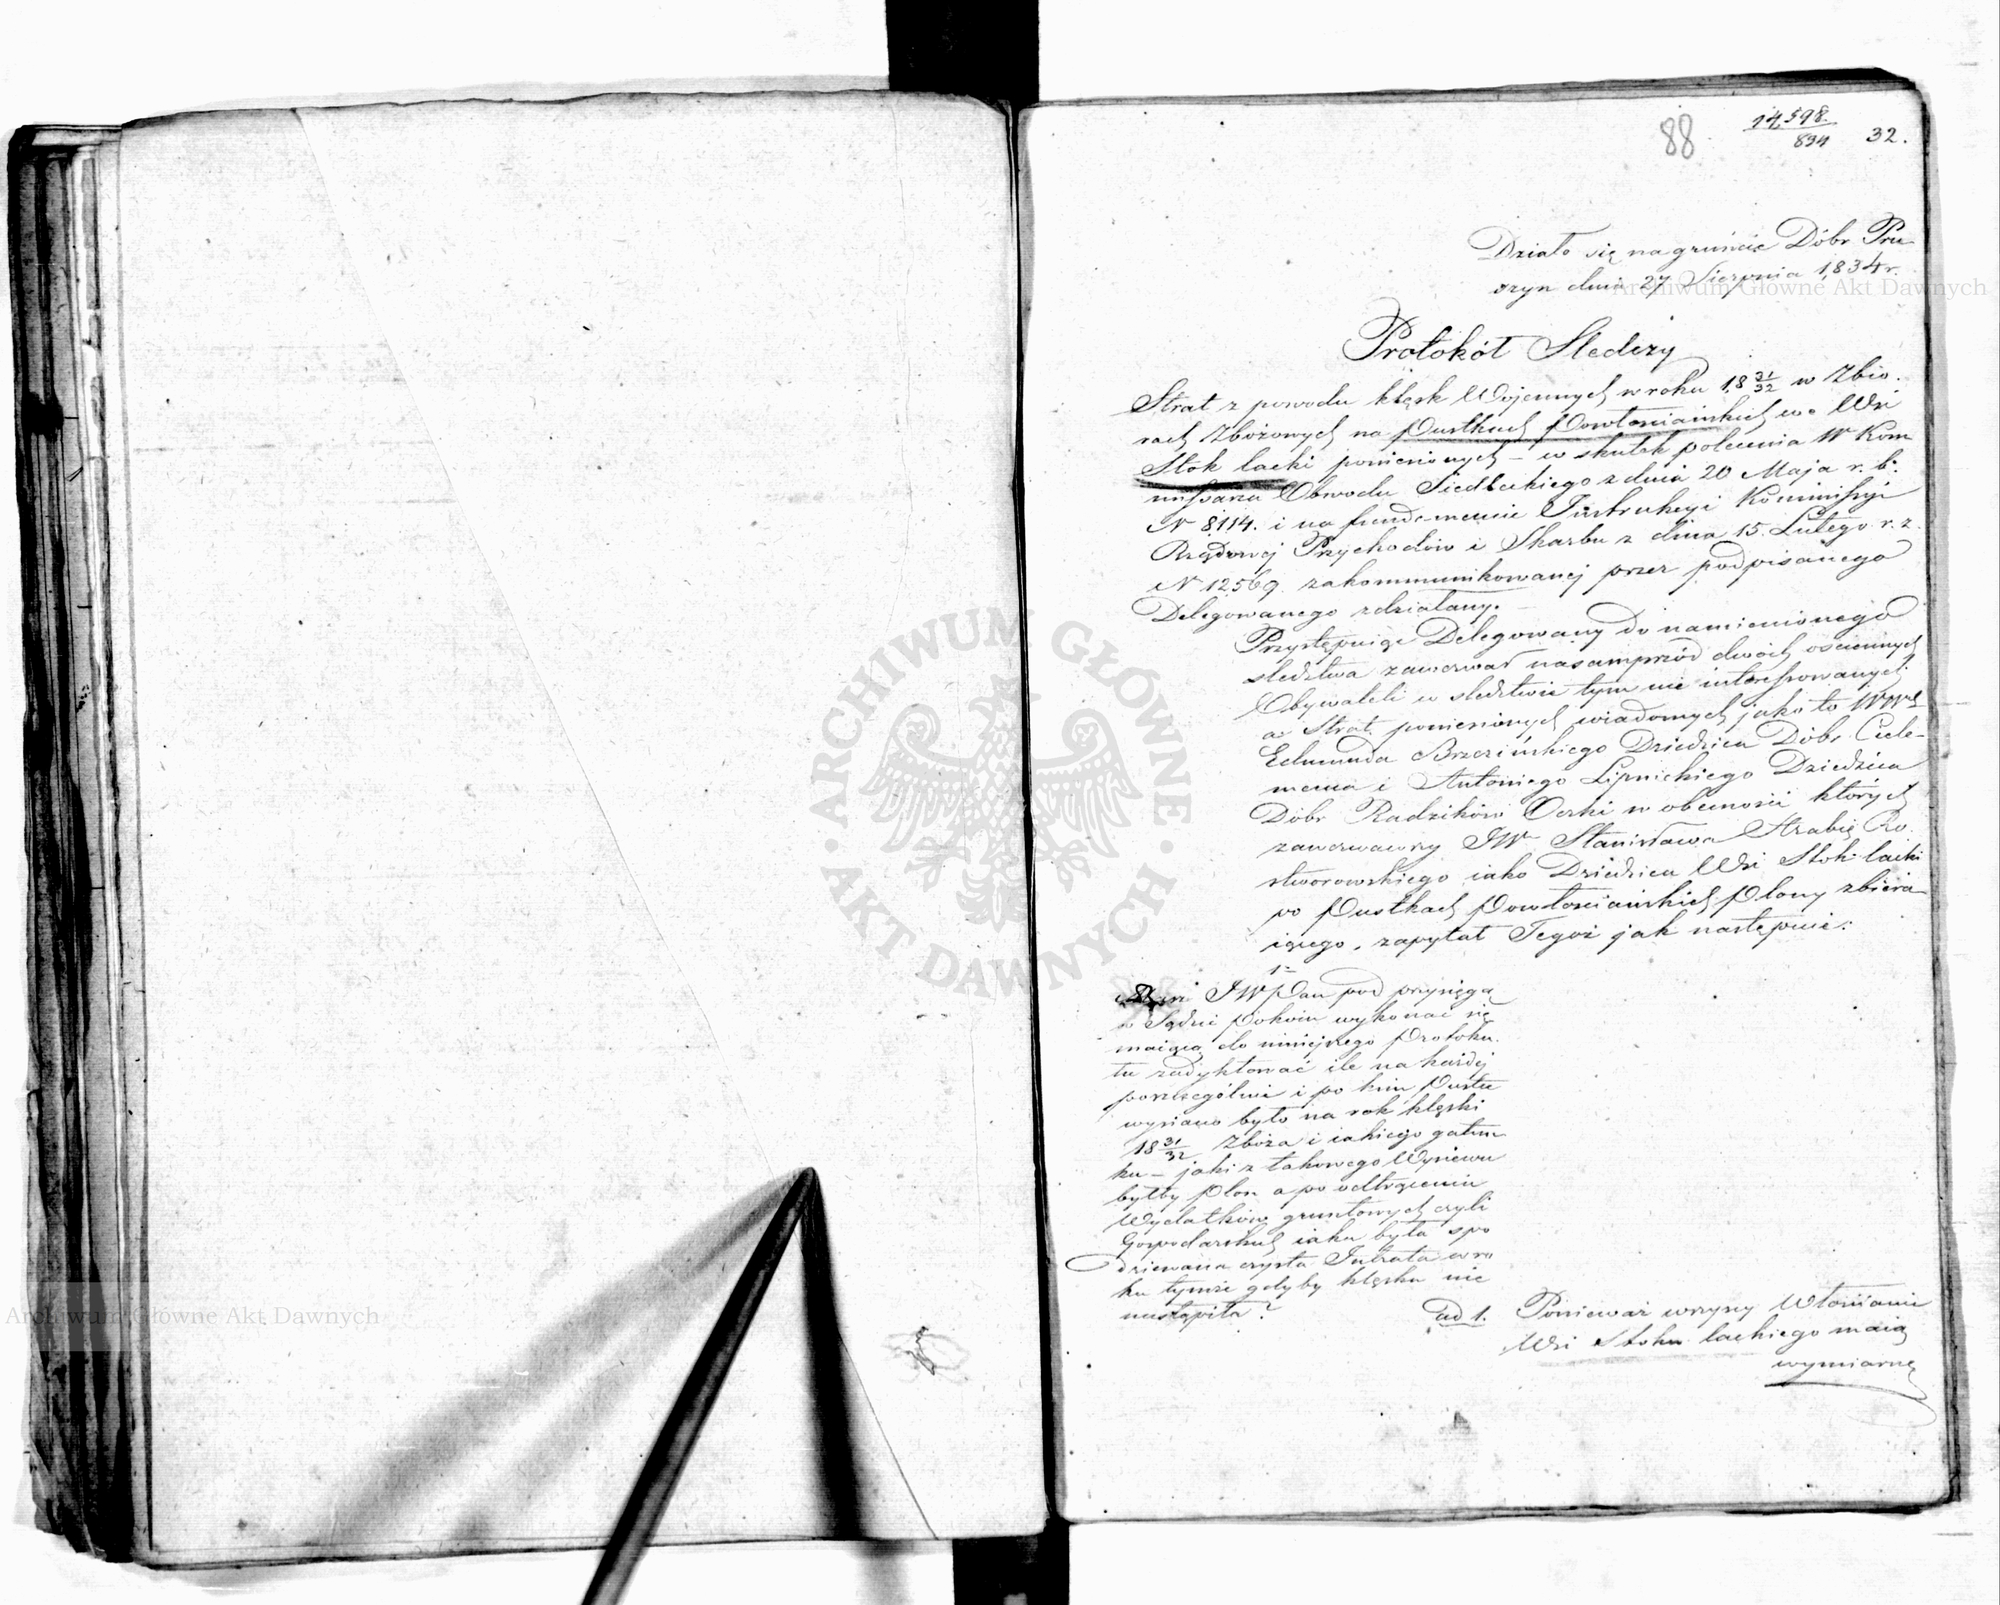 88
14,598.
834
32.
Działo się na gruncie Dóbr Pru
szyn dnia 27 Sierpnia 1834 r.
Protokół Śledczy
Strat z powodu klęsk Wojennych w roku 18 31/32 w Zbio
rach Zbożowych na Pustkach Powłościańskich we Wsi
Stok lacki poniesionych – w skutek polecenia W Kom
missarza Obwodu Siedleckiego z dnia 20 Maja r. b.
N 8114. i na fundamencie Instrukcyi Kommissyi
Rządowej Przychodów i Skarbu z dnia 15 Lutego r. z.
N 12569 zakommunikowanej przez podpisanego
Delegowanego zdziałany. –
Przystępuiąc Delegowany do namienionego
śledztwa zawezwał nasamprzód dwóch ościennych
Obywateli w śledztwie tym nie interessowanych
a Strat poniesionych wiadomych jako to WW
Edmunda Brzezińskiego Dziedzica Dóbr Ciele-
mena i Antoniego Lipnickiego Dziedzica
Dóbr Radzików Oczki w obecności których
zawezwawszy JW Stanisława Hrabię Ro
stworowskiego iako Dziedzica Wsi Stok lacki
po Pustkach Powłościańskich Plony zbiera
iącego, zapytał Tegoż jak następuie:
1o
JW Pan pod przysięgą
w Sądzie Pokoiu wykonać się
maiącą do niniejszego Protoku
łu zadyktować ile na każdej
poszczególnie i po kim Pustce
wysiano było na rok klęski
18 31/32 Zboża i iakiego gatun
ku – jaki z takowego Wysiewu
byłby plon a po odtrąceniu
Wydatków gruntowych czyli
Gospodarskich iaka była spo
dziewana czysta Intrata w ro
ku tymże gdyby klęska nie
nastąpiła?
ad 1. Ponieważ wszyscy Włościanie
Wsi Stoku lackiego maią
wymiarne
Archiwum Główne Akt Dawnych
ARCHIWUM GŁÓWNE · AKT DAWNYCH ·
Archiwum Główne Akt Dawnych